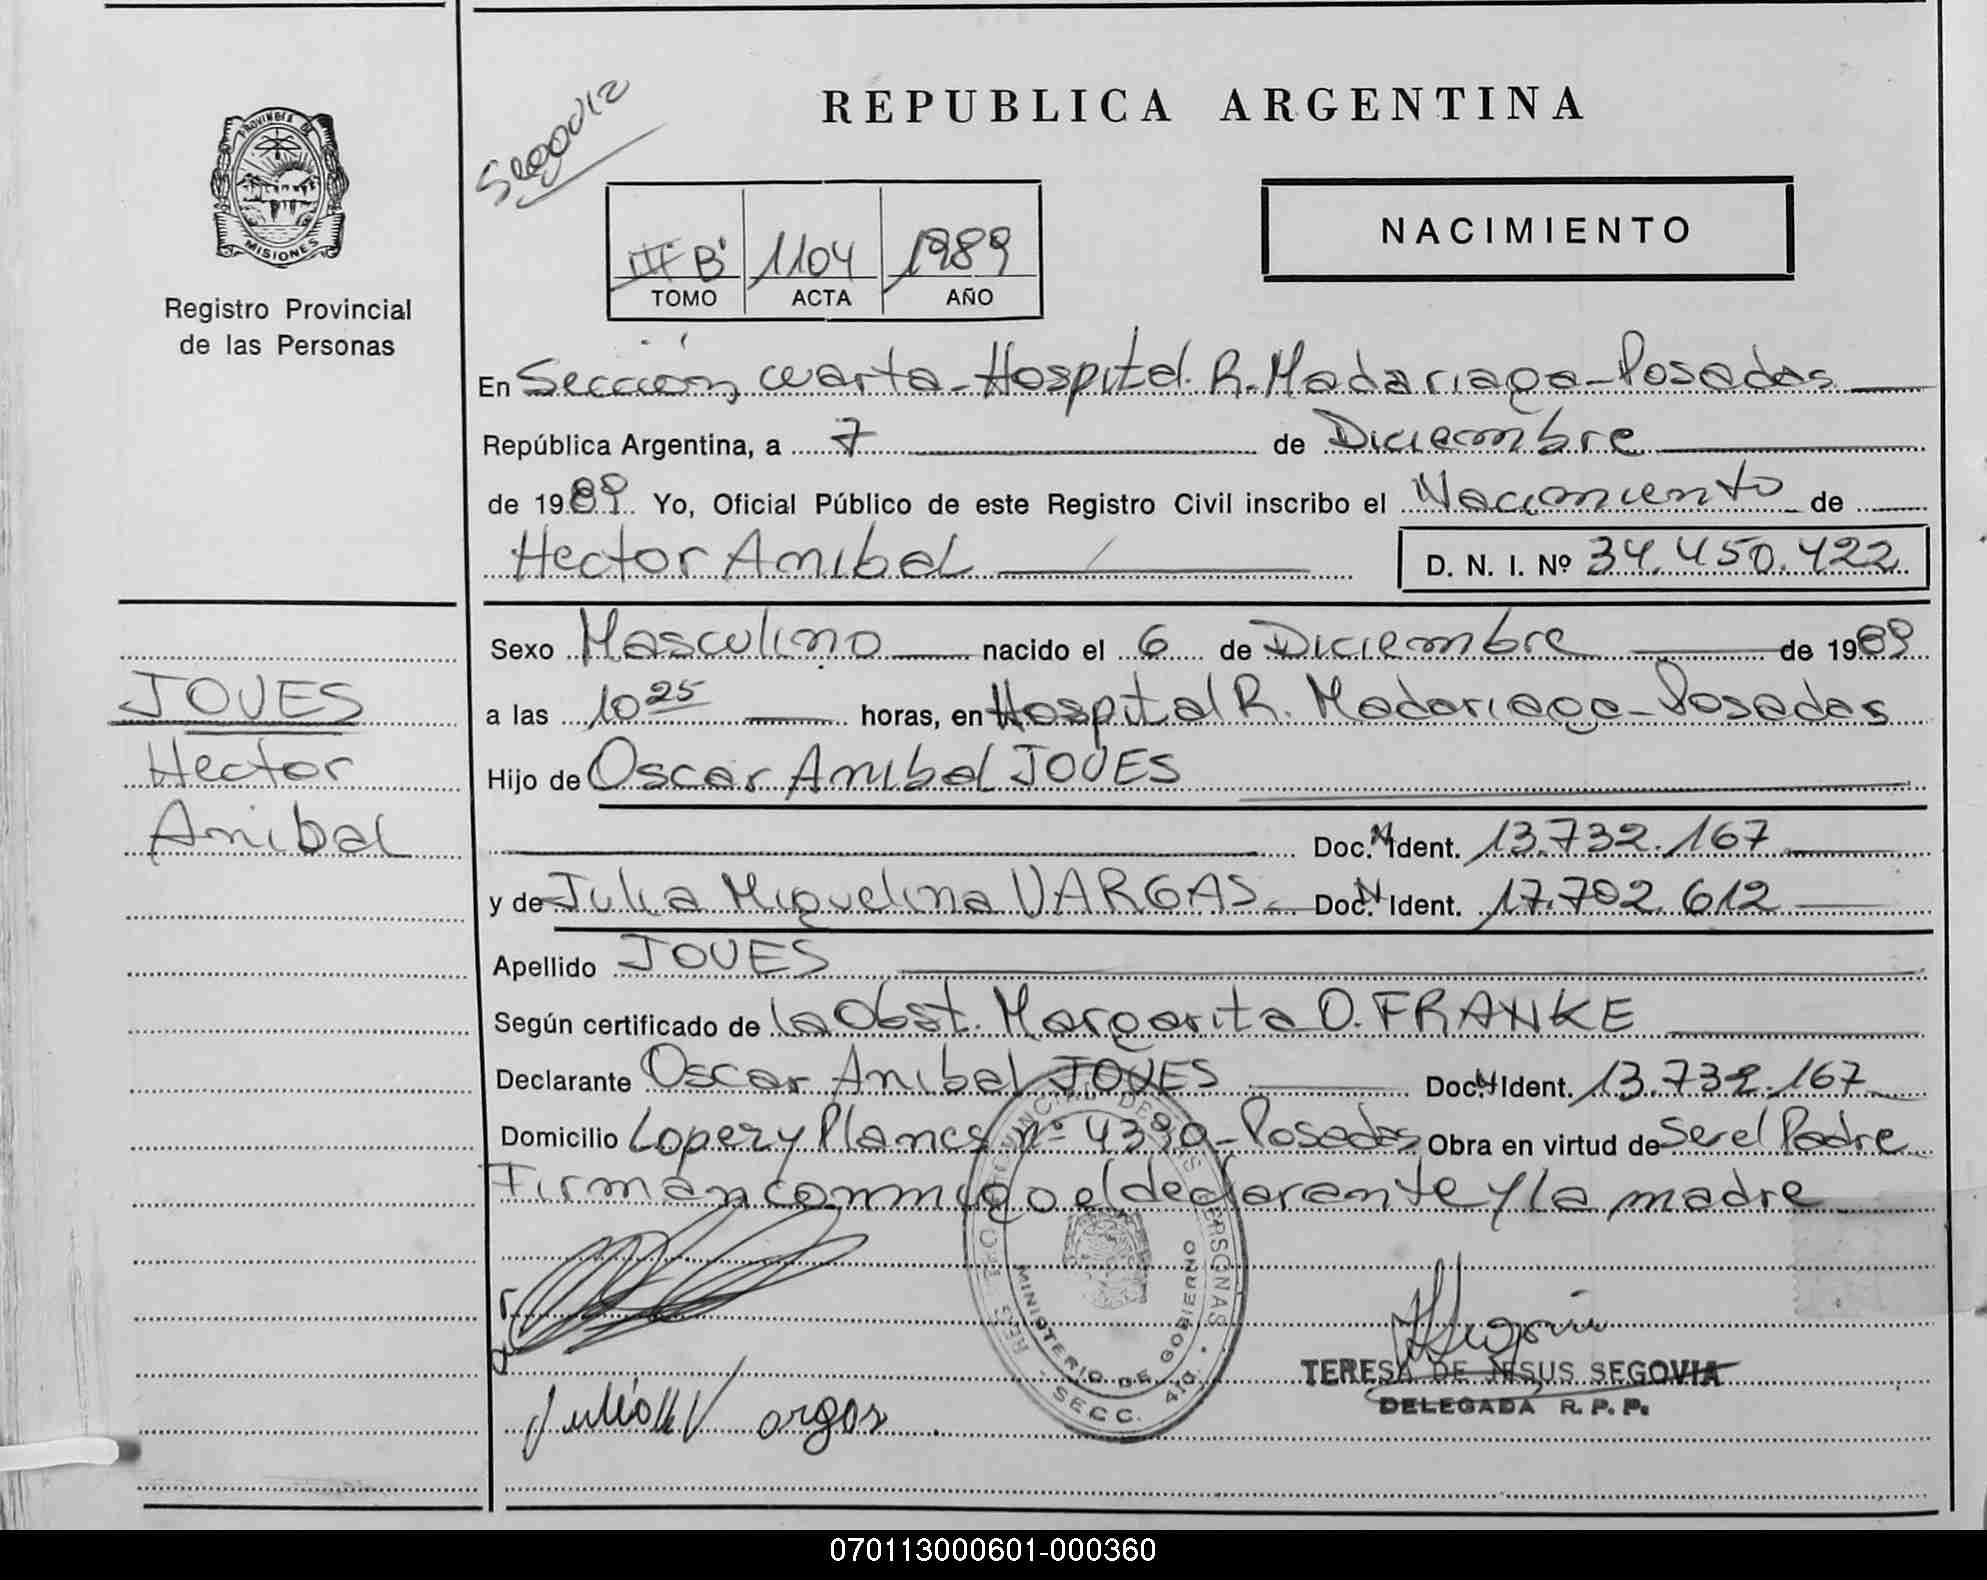 Segovia
REPUBLICA ARGENTINA
PROVINCIA DE
MISIONES
Registro Provincial
de las Personas
III B 1104 1989
TOMO ACTA AÑO
NACIMIENTO
En Sección cuarta - Hospital R. Madariaga - Posadas
República Argentina, a 7 de Diciembre
de 1989 Yo, Oficial Público de este Registro Civil inscribo el Nacimiento de
Hector Anibal D. N. I. Nº 34.450.422
Sexo Masculino nacido el 6 de Diciembre de 1989
a las 10 25 horas, en Hospital R. Madariaga - Posadas
Hijo de Oscar Anibal JOVES
Doc. N Ident. 13.732.167
y de Julia Miguelina VARGAS. Doc. N Ident. 17.702.612
Apellido JOVES
Según certificado de la Obst. Margarita O. FRANKE
Declarante Oscar Anibal JOVES Doc. N Ident. 13.732.167
Domicilio Lopez y Planes nº 4390 - Posadas Obra en virtud de Ser el Padre
Firman conmigo el declarante y la madre
JOVES
Hector
Anibal
REGISTRO PROVINCIAL DE LAS PERSONAS
MINISTERIO DE GOBIERNO
SECC. 4ta.
TERESA DE JESUS SEGOVIA
DELEGADA R. P. P.
Vargas
070113000601-000360